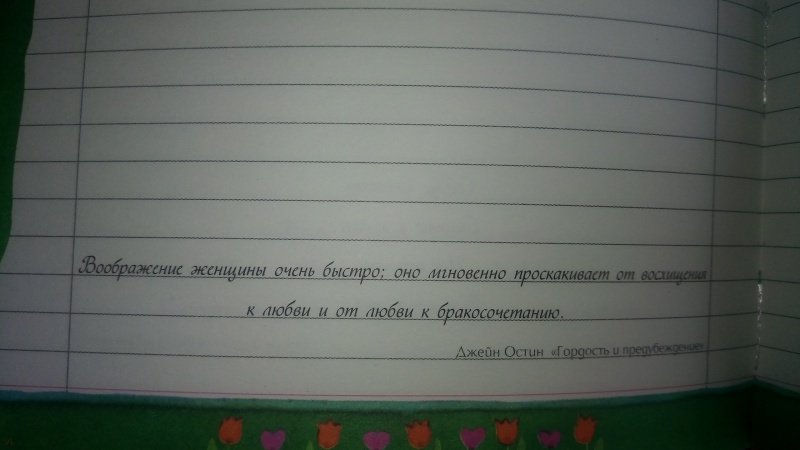 Воображение женщины очень быстро; оно мгновенно проскакивает от восхищения
к любви и от любви к бракосочетанию.
Джейн Остин «Гордость и предубеждение»